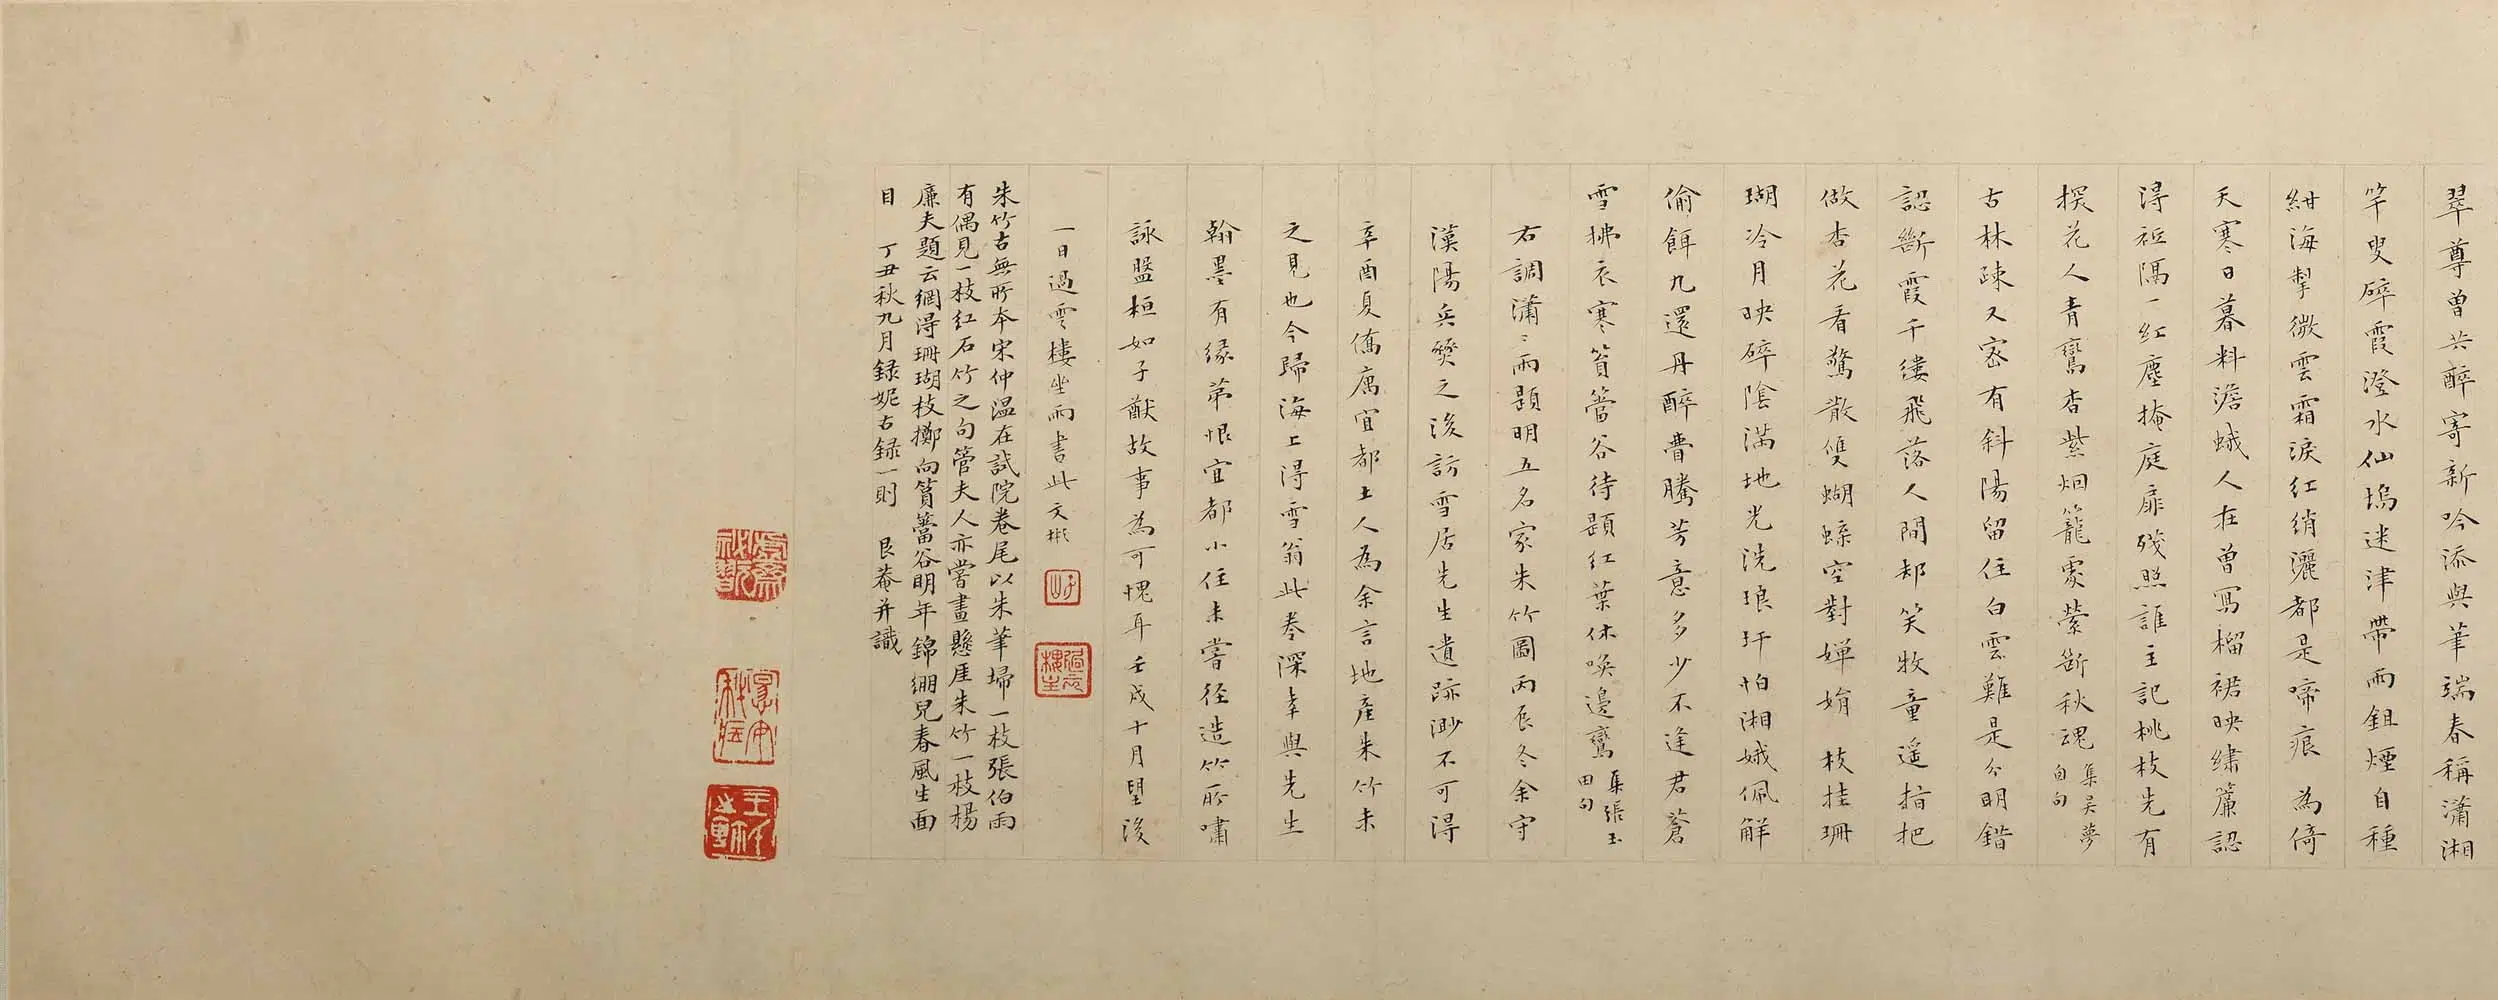 翠尊曾共醉寄新吟添與筆端春稱瀟湘
竿叟碎霞澄水仙塢迷津帶雨鉏煙自種
紺海掣微雲霜淚紅綃灑都是啼痕 為倚
天寒日暮料澹蛾人在曾寫榴裙映繡簾認
得短隔一紅塵掩庭扉殘照誰主記桃枝先有
探花人青鸞杳紫烟籠處縈斷秋魂 集吳夢窗句
古林疎又密有斜陽留住白雲難是分明錯
認斷霞千縷飛落人間却笑牧童遥指把
做杏花看驚散雙蝴蝶空對嬋娟 枝挂珊
瑚冷月映碎陰滿地光洗琅玕怕湘娥佩解
偷餌九還丹醉瞢騰芳意多少不逢君蒼
雪拂衣寒篔簹谷待題紅葉休喚邊鸞 集張玉田句
右調瀟瀟雨題明五名家朱竹圖丙辰冬余守
漢陽兵燹之後訪雪居先生遺跡渺不可得
辛酉夏僑寓宜都土人為余言地產朱竹未
之見也今歸海上得雪翁此卷深幸與先生
翰墨有緣第恨宜都小住未嘗径造竹所嘯
詠盤桓如子猷故事為可愧耳壬戌十月望後
一日過雲樓坐雨書此文彬
過雲樓主
朱竹古無所本宋仲温在試院卷尾以朱筆埽一枝張伯雨
有偶見一枝紅石竹之句管夫人亦嘗畫懸厓朱竹一枝楊
廉夫題云網得珊瑚枝擲向篔簹谷明年錦綳兒春風生面
目 丁丑秋九月録妮古録一則 艮菴并識